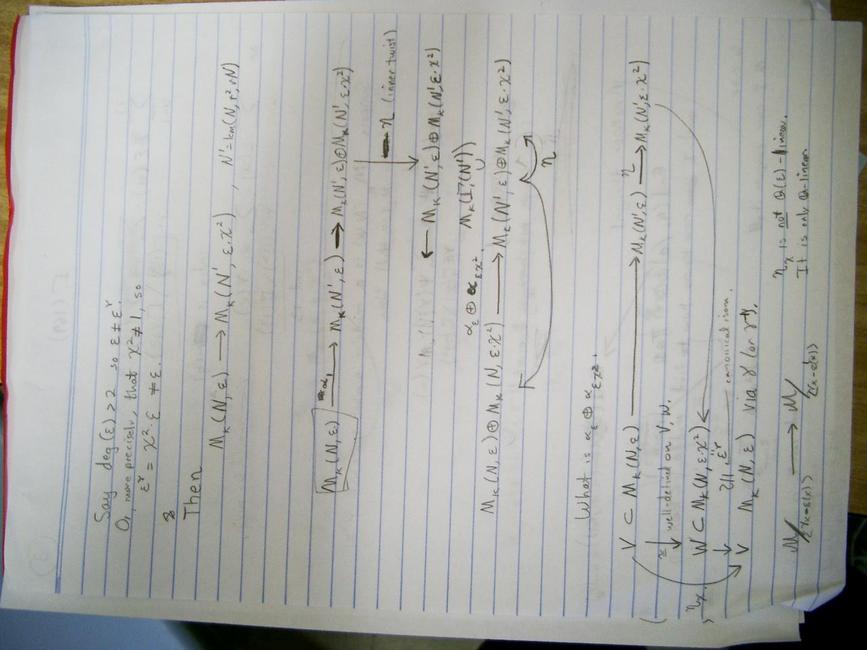 Say deg(ε) > 2 so ε ≠ ε^γ.
Or, more precisely, that χ² ≠ 1, so
ε^γ = χ²·ε ≠ ε.
Then
M_k(N, ε) ⟶ M_k(N', ε·χ²) , N' = lcm(N, r², rN)
M_k(N, ε) ⟶ M_k(N', ε) ⟶ M_k(N', ε) ⊕ M_k(N', ε·χ²)
η (inner twist)
← M_k(N', ε) ⊕ M_k(N', ε·χ²)
M_k(Γ_1(N'))
α_ε ⊕ α_{εχ²}
M_k(N, ε) ⊕ M_k(N, ε·χ²) ⟶ M_k(N', ε) ⊕ M_k(N', ε·χ²)
η
What is α_ε ⊕ α_{εχ²}.
V ⊂ M_k(N, ε) ⟶ M_k(N', ε) ⟶^η M_k(N', ε·χ²)
well-defined on V, W.
W ⊂ M_k(N, ε·χ²)
η_χ
ε^γ canonical isom.
V M_k(N, ε) via γ (or γ^{-1}).
M/(⟨x⟩-ε(x)) ⟶ M/
η_χ is not Q(ε)-linear.
It is only Q-linear